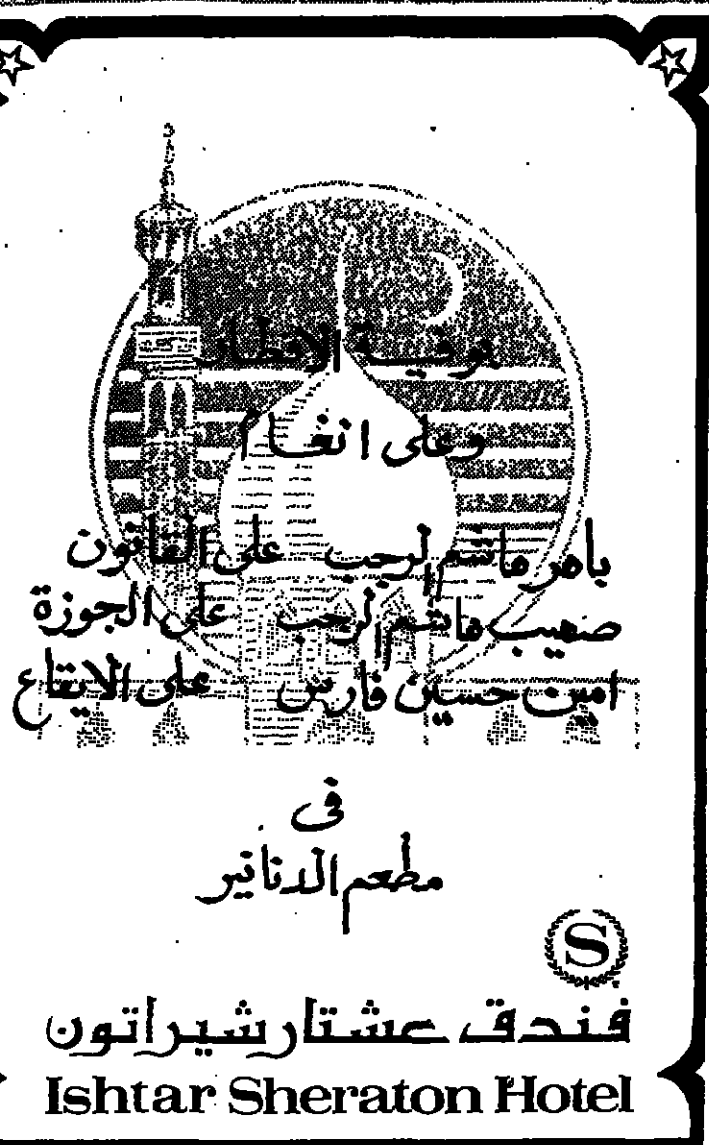 بوفية الافطار
وعلى انغام
باهر هاشم الرجب على القانون
صهيب هاشم الرجب على الجوزة
امين حسين فارس على الايقاع
في
مطعم الدنانير
S
فندق عشتار شيراتون
Ishtar Sheraton Hotel